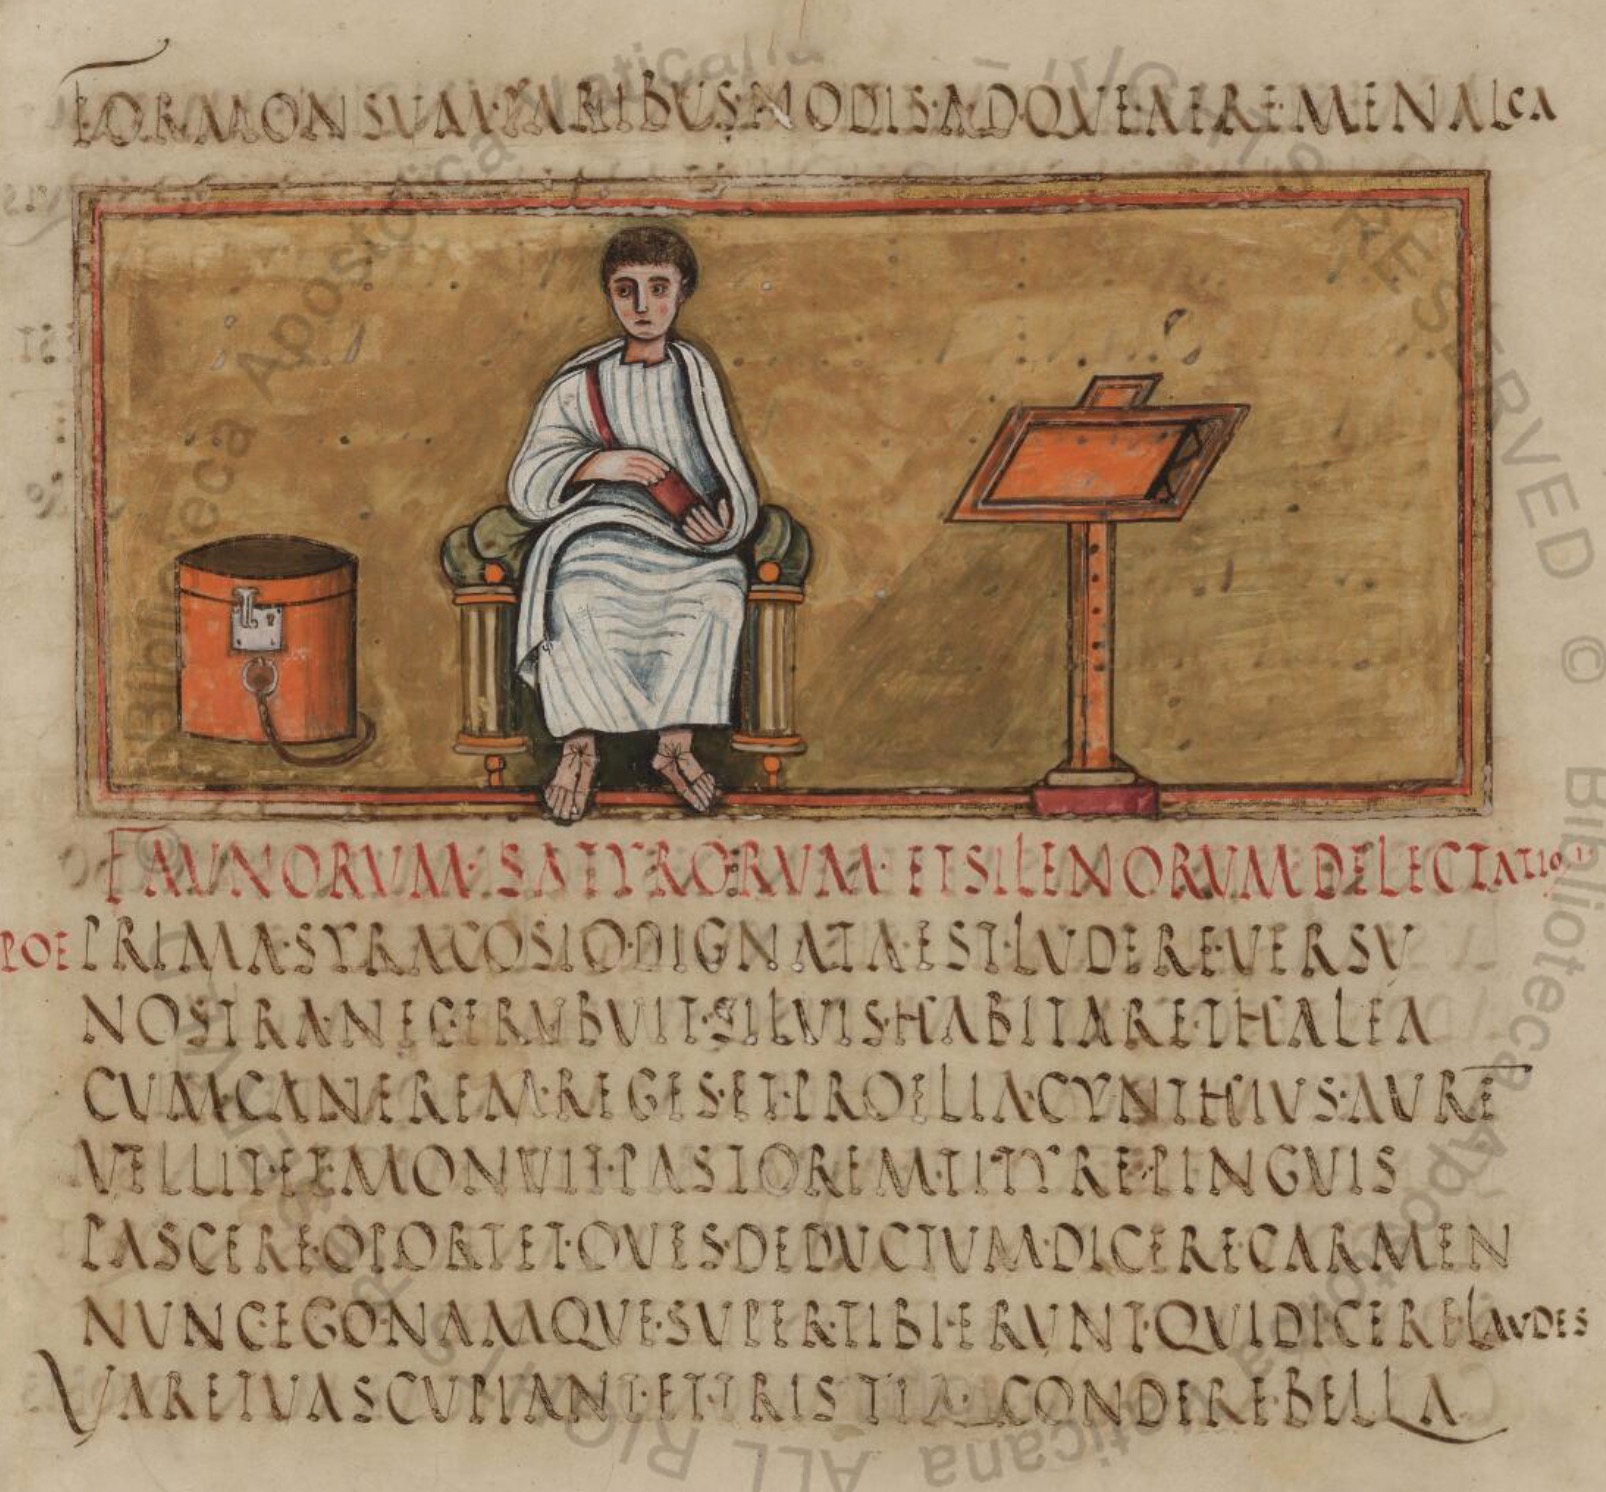 FORMONSVM·PARIBVS·NODIS·ADQVE·AERE·MENALCA
FAVNORVM·SATYRORVM·ET SILENORVM DELECTATIO
POE PRIMA·SYRACOSIO·DIGNATA·EST·LVDERE·VERSV
NOSTRA·NEC·ERVBVIT·SILVIS·HABITARE·THALEA
CVM·CANEREM·REGES·ET·PROELIA·CYNTHIVS·AVRE
VELLIT·ET·MONVIT·PASTOREM·TITYRE·PINGVIS
PASCERE·OPORTET·OVES·DEDVCTVM·DICERE·CARMEN
NVNC·EGO·NAMQVE·SVPER·TIBI·ERVNT·QVI DICERE·LAVDES
VARE TVAS CVPIANT·ET·TRISTIA·CONDERE·BELLA
© Biblioteca Apostolica Vaticana ALL RIGHTS RESERVED